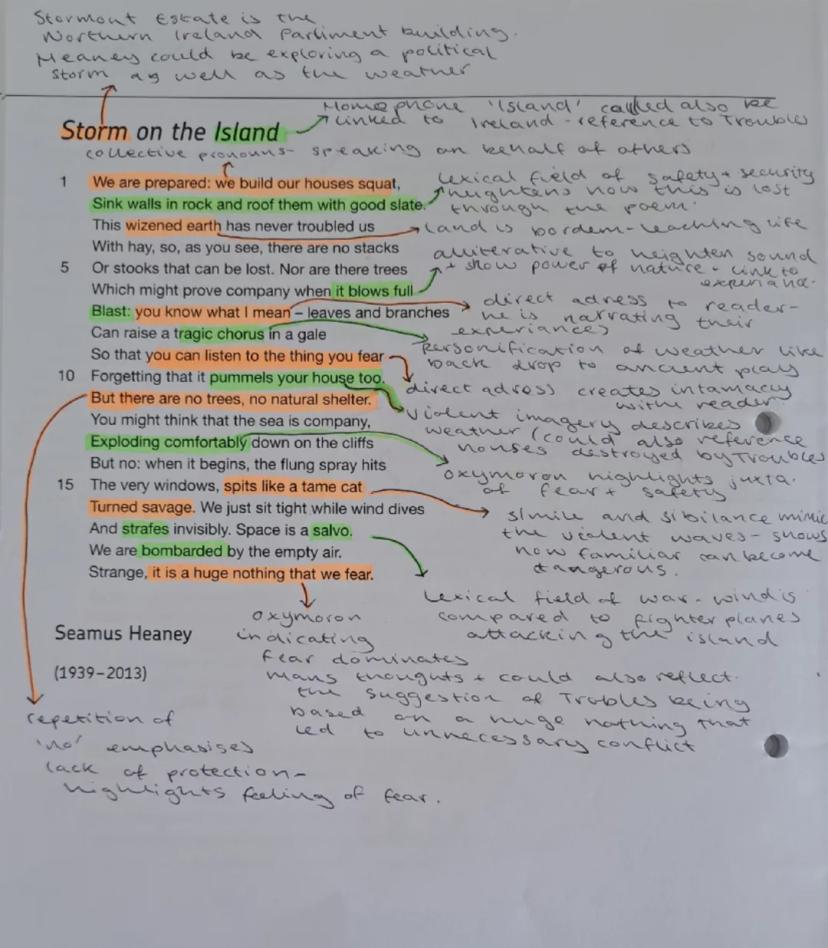 Stormont Estate is the
Northern Ireland Parliment building.
Heaney could be exploring a political
storm as well as the weather
Homophone 'Island' called also be
linked to Ireland - reference to Troubles
Storm on the Island
collective pronouns - speaking on behalf of others
1 We are prepared: we build our houses squat,
Sink walls in rock and roof them with good slate.
This wizened earth has never troubled us
With hay, so, as you see, there are no stacks
5 Or stooks that can be lost. Nor are there trees
Which might prove company when it blows full
Blast: you know what I mean – leaves and branches
Can raise a tragic chorus in a gale
So that you can listen to the thing you fear
10 Forgetting that it pummels your house too.
But there are no trees, no natural shelter.
You might think that the sea is company,
Exploding comfortably down on the cliffs
But no: when it begins, the flung spray hits
15 The very windows, spits like a tame cat
Turned savage. We just sit tight while wind dives
And strafes invisibly. Space is a salvo.
We are bombarded by the empty air.
Strange, it is a huge nothing that we fear.
Seamus Heaney
(1939–2013)
lexical field of safety + security
heightens how this is lost
through the poem.
land is bordem - leaching life
alliterative to heighten sound
+ show power of nature - link to
direct adress to reader -
he is narrating their
experiances
Personification of weather like
back drop to ancient plays
direct adress creates intamacy
withe reader
violent imagery describes
weather (could also reference
houses destroyed by Troubles
oxymoron highlights juxta.
of fear + safety
simile and sibilance mimic
the violent waves - shows
how familiar can become
dangerous.
lexical field of war - wind is
compared to fighter planes
attacking the island
oxymoron
indicating
fear dominates
mans thoughts + could also reflect
the suggestion of Trobles being
based on a huge nothing that
led to unnecessary conflict
repetition of
'no' emphasises
lack of protection -
highlights feeling of fear.